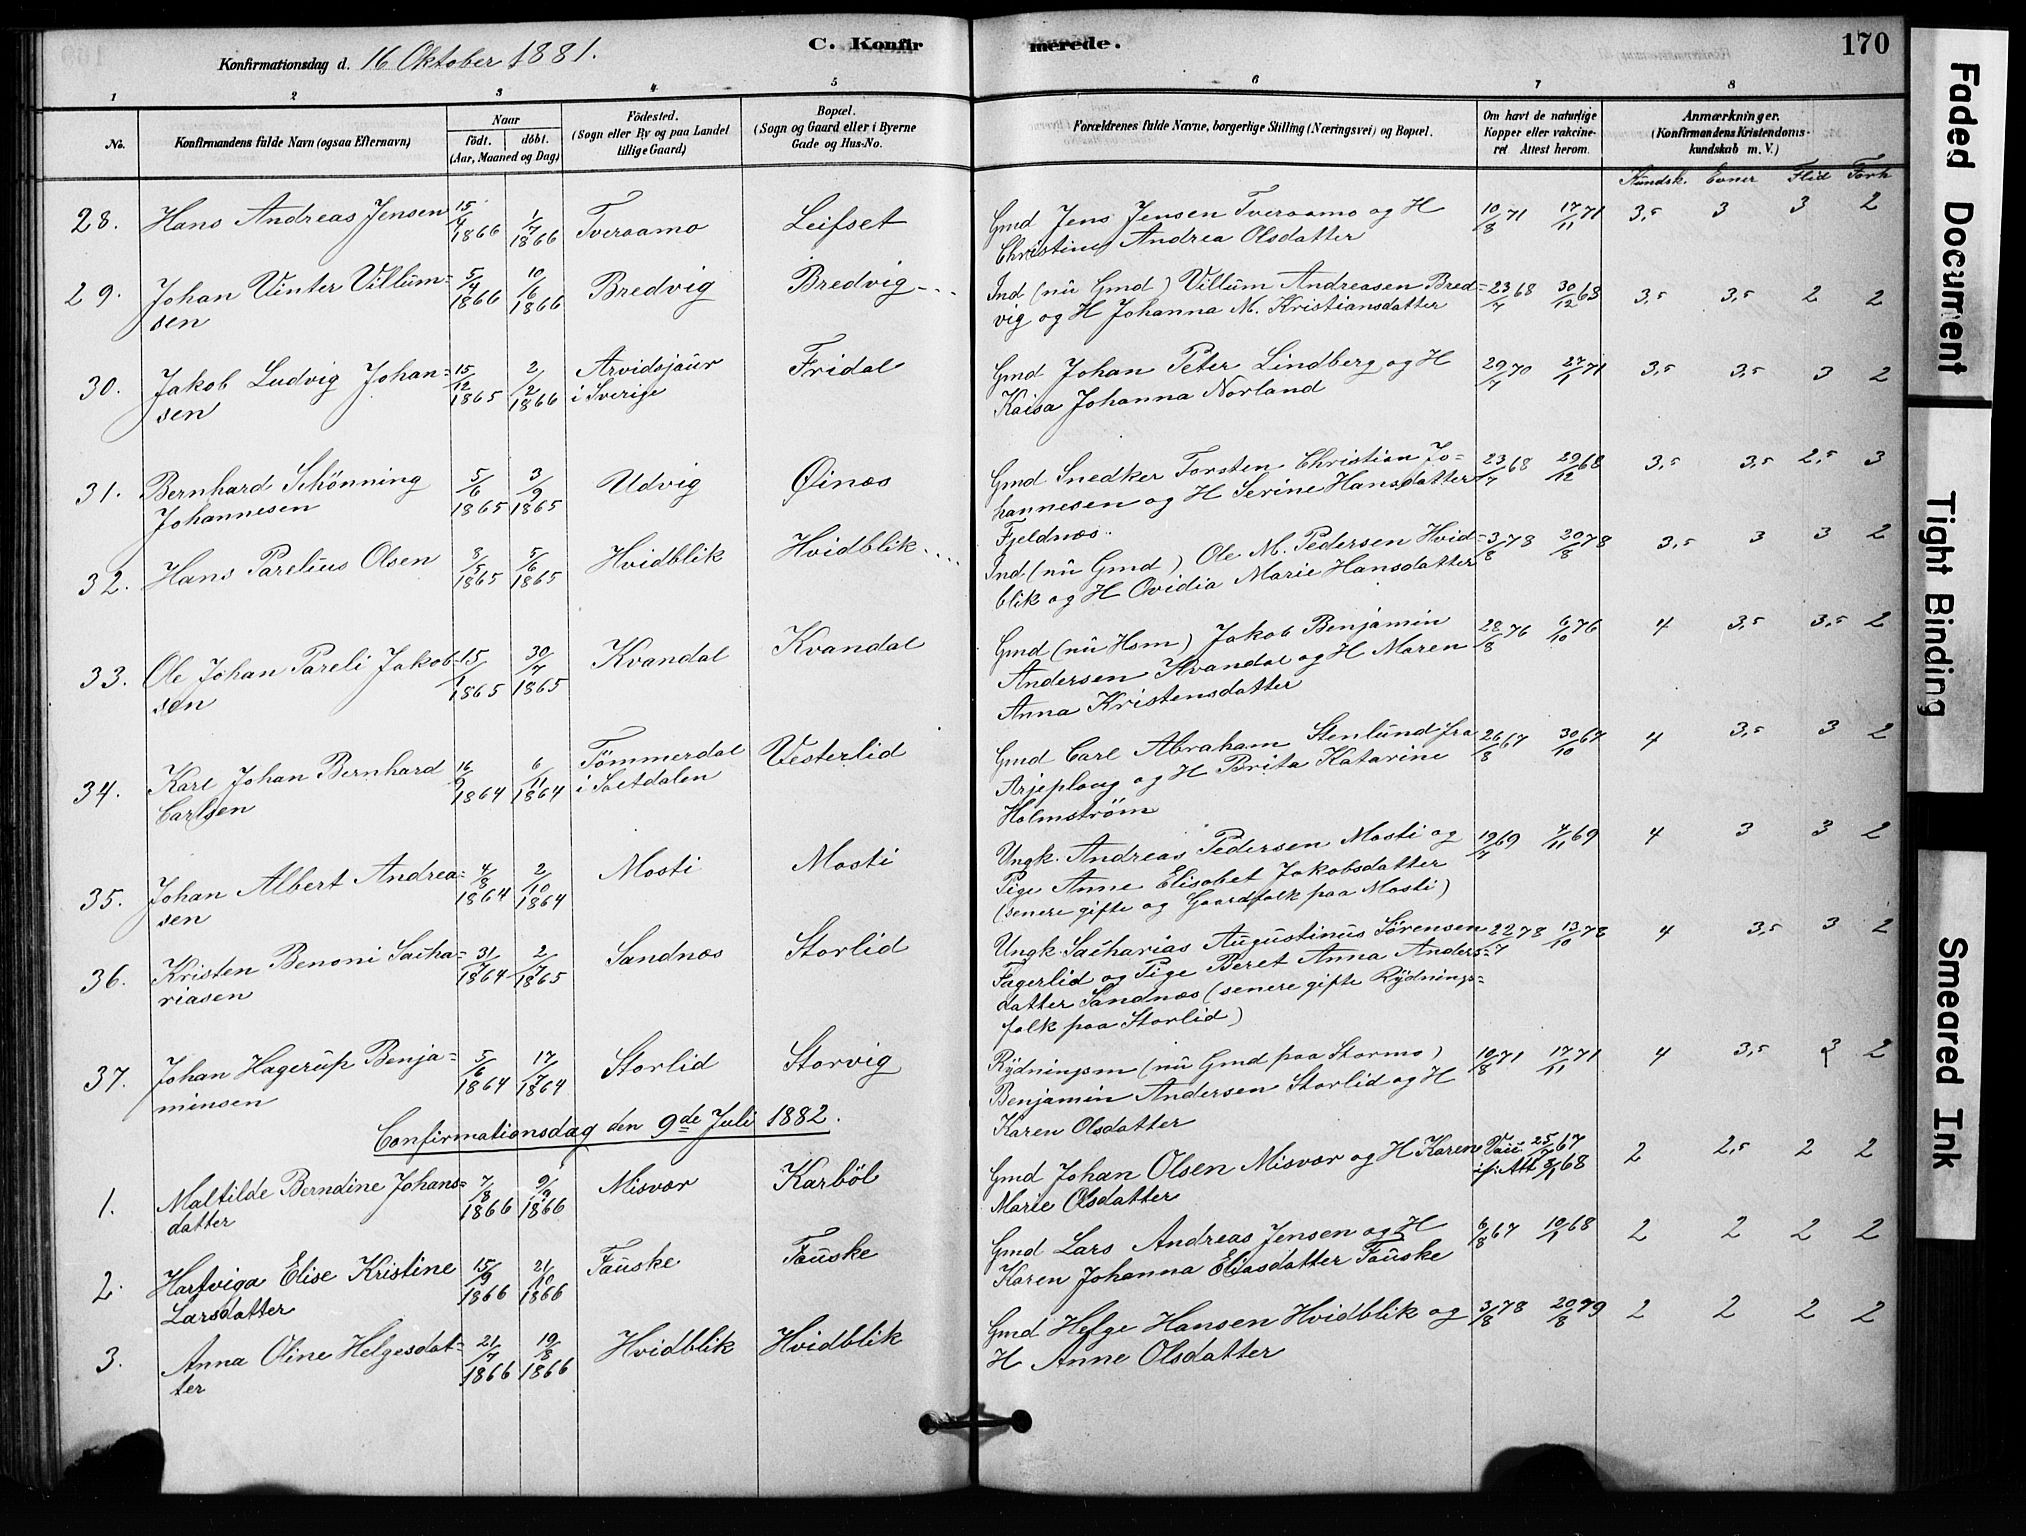 C. Konfirmerede. 170
Konfirmationsdag d. 16 Oktober 1881.
1 2 3 4 5 6 7 8
No. Konfirmandens fulde Navn (ogsaa Efternavn) Naar født. døbt. (Aar, Maaned og Dag) Fødested. (Sogn eller By og paa Landet tillige Gaard) Bopæl. (Sogn og Gaard eller i Byerne Gade og Hus-No. Forældrenes fulde Navne, borgerlige Stilling (Næringsvei) og Bopæl. Om havt de naturlige Kopper eller vakcineret Attest herom. Anmærkninger. (Konfirmandens Kristendomskundskab m. V.)
Kundsk. Evner Flid Forh
28. Hans Andreas Jensen 15/6 1866 1/7 1866 Tveraamo Leifset Gmd Jens Jensen Tveraamo og H 10/8 71 17/11 71 3,5 3 3 2
Christine Andrea Olsdatter
29. Johan Vinter Villum- 5/4 1866 10/6 1866 Bredvig Bredvig Ind (nu Gmd) Villum Andreasen Bred- 23/7 68 30/12 68 3,5 3,5 2 2
sen vig og H Johanna M. Kristiansdatter
30. Jakob Ludvig Johan- 15/12 1865 2/2 1866 Arvidsjaur Fridal Gmd Johan Peter Lindberg og H 29/7 70 27/1 71 3,5 3,5 3 2
sen i Sverige Kaisa Johanna Norland
31. Bernhard Schönning 5/6 1865 3/9 1865 Udvig Øinæs Gmd Snedker Torsten Christian Jo- 23/7 68 29/12 68 3,5 3,5 2,5 3
Johannesen hannesen og H Serine Hansdatter
Fjeldnæs.
32. Hans Parelius Olsen 3/5 1865 5/6 1865 Hvidblik Hvidblik Ind (nu Gmd) Ole M. Pedersen Hvid- 3/8 78 20/8 78 3,5 3 3 2
blik og H Ovidia Marie Hansdatter
33. Ole Johan Pareli Jakob- 15/1 1865 30/7 1865 Kvandal Kvandal Gmd (nu Hsm) Jakob Benjamin 28/8 76 6/10 76 4 3,5 3,5 2
sen Andersen Kvandal og H Maren
Anna Kristensdatter
34. Karl Johan Bernhard 16/9 1864 6/11 1864 Tömmerdal Vesterlid Gmd Carl Abraham Stenlund fra 26/8 67 30/10 67 4 3,5 3 2
Carlsen i Saltdalen Arjeploug og H Brita Katarine
Holmström
35. Johan Albert Andrea- 4/8 1864 2/10 1864 Mosti Mosti Ungk. Andreas Pedersen Mosti og 19/7 69 4/11 69 4 3 3 2
sen Pige Anne Elisabet Jakobsdatter
(senere gifte og Gaardfolk paa Mosti)
36. Kristen Benoni Sacha- 31/7 1864 2/7 1865 Sandnæs Storlid Ungk. Sacharias Augustinus Sörensen 22/7 78 13/10 78 4 3,5 3 2
riasen Fagerlid og Pige Beret Anna Anders-
datter Sandnæs (senere gifte Rydnings-
folk paa Storlid)
37. Johan Hagerup Benja- 5/6 1864 17/7 1864 Storlid Storvig Rydningsm (nu Gmd paa Stormo) 10/8 71 17/11 71 4 3,5 3 2
minsen Benjamin Andersen Storlid og H
Karen Olsdatter
Confirmationsdag den 9de Juli 1882.
1. Maltilde Berndine Johans- 7/8 1866 9/9 1866 Misvær Karböl Gmd Johan Olsen Misvær og H Karen 25/7 67 2 2,5 2 2
datter Marie Olsdatter Att 3/1 68
2. Hartviga Elise Kristine 15/9 1866 21/10 1866 Fauske Fauske Gmd Lars Andreas Jensen og H 6/8 67 10/1 68 2 2 2 2
Larsdatter Karen Johanna Eliasdatter Fauske
3. Anna Oline Helgesdat- 21/7 1866 19/8 1866 Hvidblik Hvidblik Gmd Helge Hansen Hvidblik og 3/8 78 20/8 79 2 2 2 2
ter H Anne Olsdatter
Faded Document
Tight Binding
Smeared Ink